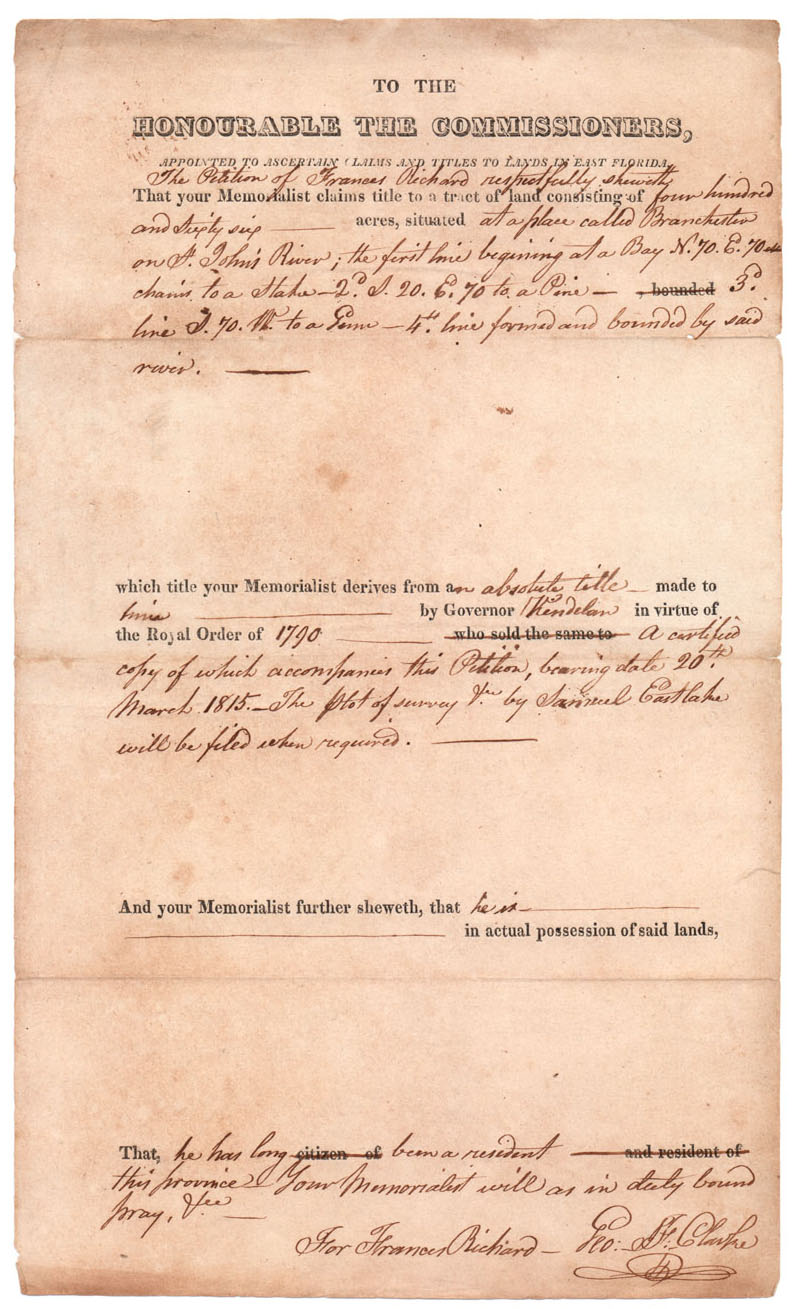 TO THE
HONOURABLE THE COMMISSIONERS,
APPOINTED TO ASCERTAIN CLAIMS AND TITLES TO LANDS IN EAST FLORIDA.
The Petition of Frances Richard respectfully sheweth
That your Memorialist claims title to a tract of land consisting of four hundred
and sixty six acres, situated at a place called Branchester
on St. John's River; the first line begining at a Bay N. 70. E. 70
chains to a Stake - 2d S. 20. E. 70 to a Pine - , bounded 3d
line S. 70. W. to a Gum - 4th line formed and bounded by said
river.
which title your Memorialist derives from an absolute title made to
him by Governor Kindelan in virtue of
the Royal Order of 1790 who sold the same to A certified
copy of which accompanies this Petition, bearing date 20th
March 1815. - The plot of survey &c by Samuel Eastlake
will be filed when required.
And your Memorialist further sheweth, that he is
in actual possession of said lands,
That, he has long citizen of been a resident and resident of
this province - Your Memorialist will as in duty bound
pray, &ce
For Frances Richard - Geo: J. F. Clarke